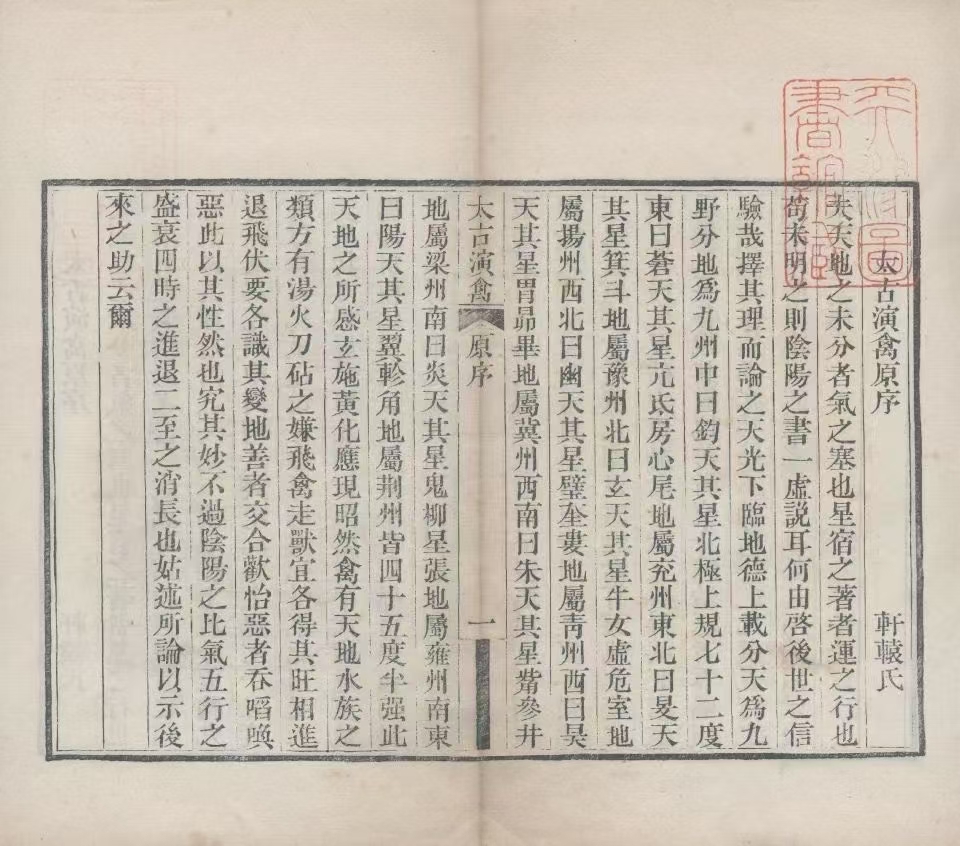 太古演禽原序
軒轅氏
夫天地之未分者氣之塞也星宿之著者運之行也
苟未明之則陰陽之書一虛説耳何由啓後世之信
驗哉擇其理而論之天光下臨地德上載分天爲九
野分地爲九州中曰鈞天其星北極上規七十二度
東曰蒼天其星亢氐房心尾地屬兖州東北曰旻天
其星箕斗地屬豫州北曰玄天其星牛女虛危室地
屬揚州西北曰幽天其星璧奎婁地屬靑州西曰昊
天其星胃昴畢地屬冀州西南曰朱天其星觜參井
太古演禽
原序
一
地屬梁州南曰炎天其星鬼柳星張地屬雍州南東
曰陽天其星翼軫角地屬荆州皆四十五度半强此
天地之所感玄施黃化應現昭然禽有天地水族之
類方有湯火刀砧之嫌飛禽走獸宜各得其旺相進
退飛伏要各識其變地善者交合歡怡惡者吞啗喚
惡此以其性然也究其妙不過陰陽之比氣五行之
盛衰四時之進退二至之消長也姑述所論以示後
來之助云爾